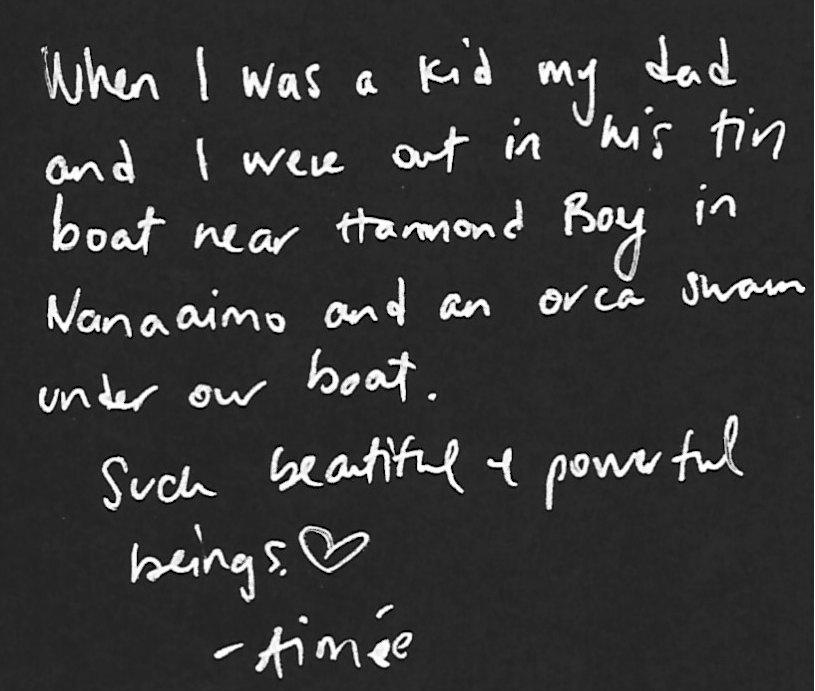 When I was a kid my dad
and I were out in his tin
boat near Hammond Bay in
Nanaaimo and an orca swam
under our boat.
Such beautiful & powerful
beings. ♡
- Aimée